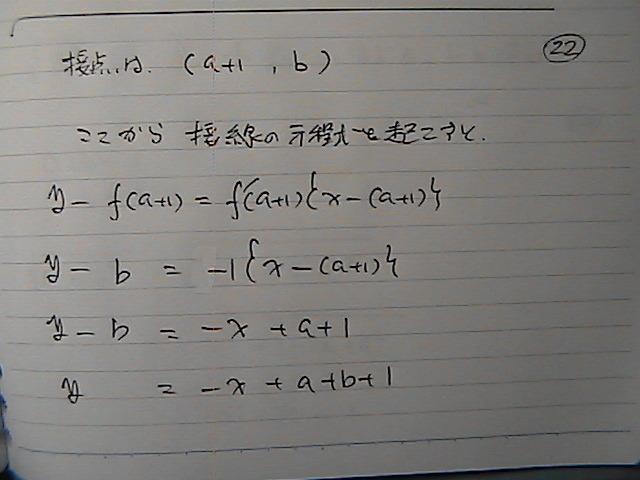 接点は、(a+1, b)
㉒
ここから 接線の方程式を起こすと、
y - f(a+1) = f'(a+1){x-(a+1)}
y - b = -1{x-(a+1)}
y - b = -x + a+1
y = -x + a+b+1